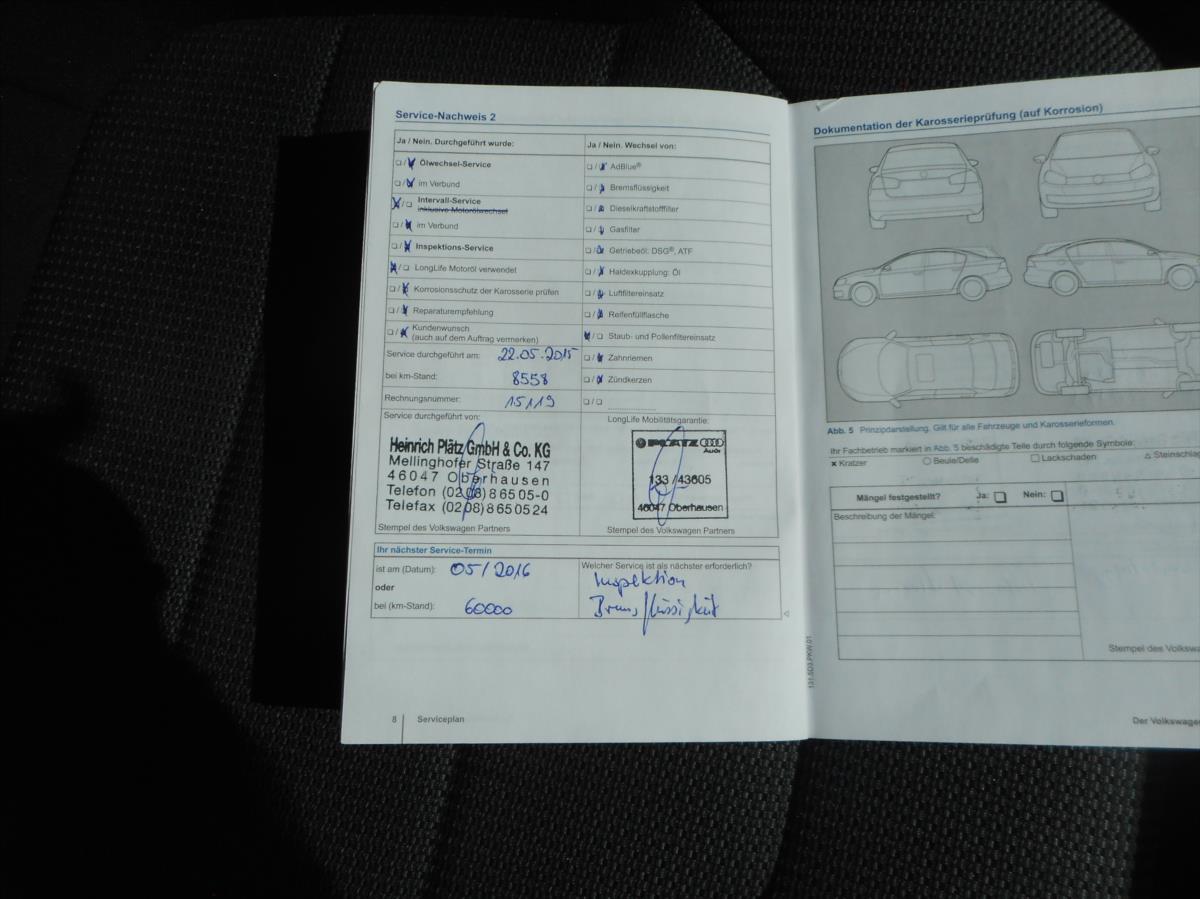 Service-Nachweis 2
Ja / Nein. Durchgeführt wurde:
Ölwechsel-Service
im Verbund
Intervall-Service
inklusive Motorölwechsel
im Verbund
Inspektions-Service
LongLife Motoröl verwendet
Korrosionsschutz der Karosserie prüfen
Reparaturempfehlung
Kundenwunsch
(auch auf dem Auftrag vermerken)
Ja / Nein. Wechsel von:
AdBlue®
Bremsflüssigkeit
Dieselkraftstofffilter
Gasfilter
Getriebeöl: DSG®, ATF
Haldexkupplung: Öl
Luftfiltereinsatz
Reifenfüllflasche
Staub- und Pollenfiltereinsatz
Zahnriemen
Zündkerzen
Service durchgeführt am: 22.05.2015
bei km-Stand: 8558
Rechnungsnummer: 15119
Service durchgeführt von:
Heinrich Plätz GmbH & Co. KG
Mellinghofer Straße 147
46047 Oberhausen
Telefon (0208) 8 65 05-0
Telefax (0208) 8 65 05 24
Stempel des Volkswagen Partners
LongLife Mobilitätsgarantie:
PLÄTZ
Audi
133 / 43605
46047 Oberhausen
Stempel des Volkswagen Partners
Ihr nächster Service-Termin
ist am (Datum): 05/2016
oder
bei (km-Stand): 60000
Welcher Service ist als nächster erforderlich?
Inspektion
Bremsflüssigkeit
8 Serviceplan
Dokumentation der Karosserieprüfung (auf Korrosion)
Abb. 5 Prinzipdarstellung. Gilt für alle Fahrzeuge und Karosserieformen.
Ihr Fachbetrieb markiert in Abb. 5 beschädigte Teile durch folgende Symbole:
Kratzer Beule/Delle Lackschaden Steinschlag
Mängel festgestellt? Ja: Nein:
Beschreibung der Mängel:
Stempel des Volkswa
131.5D3.PKW.01
Der Volkswagen